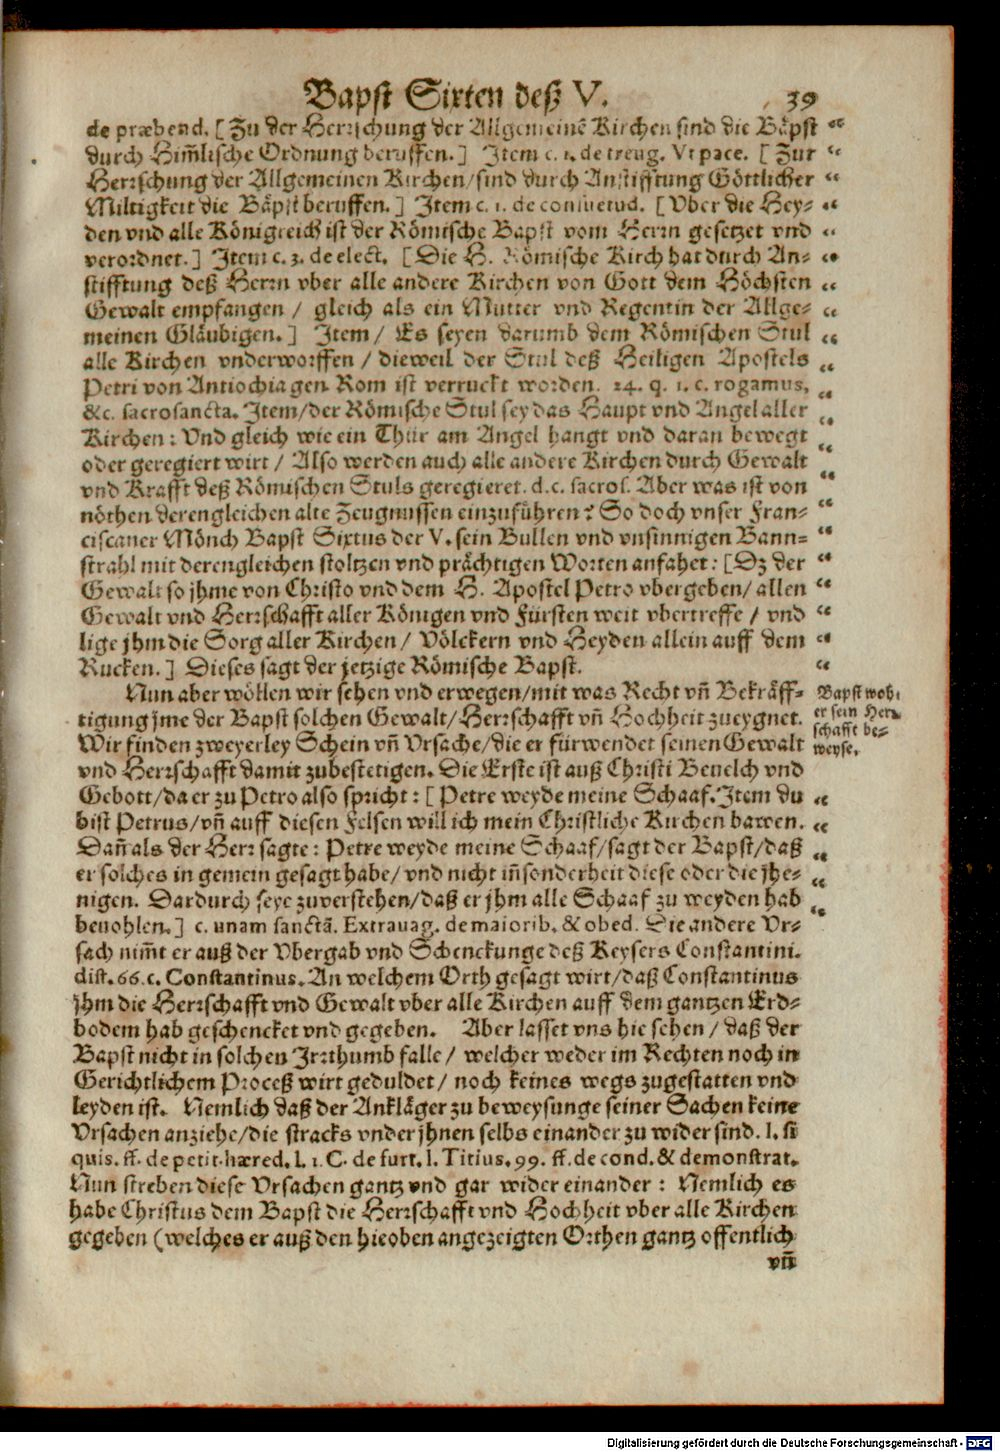 Bapst Sixten deß V. 39
de præbend. [Zu der Herrschung der Allgemeinẽ Kirchen sind die Bäpst
durch Him̃lische Ordnung beruffen.] Item c. 1. de treug. Vt pace. [Zur
Herrschung der Allgemeinen Kirchen/sind durch Anstifftung Göttlicher
Miltigkeit die Bäpst beruffen.] Item c. 1. de consuetud. [Vber die Hey-
den vnd alle Königreich ist der Römische Bapst vom Herrn gesetzet vnd
verordnet.] Item c. 3. de elect. [Die H. Römische Kirch hat durch An-
stifftung deß Herrn vber alle andere Kirchen von Gott dem Höchsten
Gewalt empfangen / gleich als ein Mutter vnd Regentin der Allge-
meinen Gläubigen.] Item / Es seyen darumb dem Römischen Stul
alle Kirchen vnderworffen / dieweil der Stul deß Heiligen Apostels
Petri von Antiochia gen Rom ist verruckt worden. 24. q. 1. c. rogamus,
&c. sacrosancta. Item/der Römische Stul sey das Haupt vnd Angel aller
Kirchen: Vnd gleich wie ein Thür am Angel hangt vnd daran bewegt
oder geregiert wirt / Also werden auch alle andere Kirchen durch Gewalt
vnd Krafft deß Römischen Stuls geregieret. d.c. sacros. Aber was ist von
nöthen derengleichen alte Zeugnussen einzuführen? So doch vnser Fran-
ciscaner Mönch Bapst Sixtus der V. sein Bullen vnd vnsinnigen Bann-
strahl mit derengleichen stoltzen vnd prächtigen Worten anfahet: [Dz der
Gewalt so jhme von Christo vnd dem H. Apostel Petro vbergeben/ allen
Gewalt vnd Herrschafft aller Königen vnd Fürsten weit vbertreffe / vnd
lige jhm die Sorg aller Kirchen / Völckern vnd Heyden allein auff dem
Rucken.] Dieses sagt der jetzige Römische Bapst.
Nun aber wöllen wir sehen vnd erwegen/mit was Recht vñ Bekräff-
tigung jme der Bapst solchen Gewalt/Herrschafft vñ Hochheit zueygnet.
Wir finden zweyerley Schein vñ Vrsache/die er fürwendet seinen Gewalt
vnd Herrschafft damit zubestetigen. Die Erste ist auß Christi Beuelch vnd
Gebott/da er zu Petro also spricht: [Petre weyde meine Schaaf. Item du
bist Petrus/vñ auff diesen Felsen will ich mein Christliche Kirchen bawen.
Dañ als der Herr sagte: Petre weyde meine Schaaf/sagt der Bapst/daß
er solches in gemein gesagt habe/ vnd nicht iñsonderheit diese oder die jhe-
nigen. Dardurch seye zuverstehen/daß er jhm alle Schaaf zu weyden hab
beuohlen.] c. unam sanctã. Extravag. de maiorib. & obed. Die andere Vr-
sach nim̃t er auß der Vbergab vnd Schenckunge deß Keysers Constantini.
dist. 66. c. Constantinus. An welchem Orth gesagt wirt/daß Constantinus
jhm die Herrschafft vnd Gewalt vber alle Kirchen auff dem gantzen Erd-
bodem hab geschencket vnd gegeben. Aber lasset vns hie sehen / daß der
Bapst nicht in solchen Irrthumb falle / welcher weder im Rechten noch in
Gerichtlichem Proceß wirt geduldet / noch keines wegs zugestatten vnd
leyden ist. Nemlich daß der Ankläger zu beweysunge seiner Sachen keine
Vrsachen anziehe/die stracks vnder jhnen selbs einander zu wider sind. l. si
quis. ff. de petit. hæred. l. 1. C. de furt. l. Titius. 99. ff. de cond. & demonstrat.
Nun streben diese Vrsachen gantz vnd gar wider einander: Nemlich es
habe Christus dem Bapst die Herrschafft vnd Hochheit vber alle Kirchen
gegeben (welches er auß den hieoben angezeigten Orthen gantz offentlich
vñ
Bapst woh-
er sein Herr-
schafft be-
weyse.
Digitalisierung gefördert durch die Deutsche Forschungsgemeinschaft - DFG